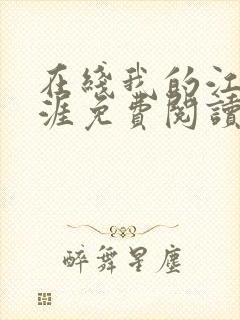 在綫我的江
涯免費閱讀
醉舞星塵